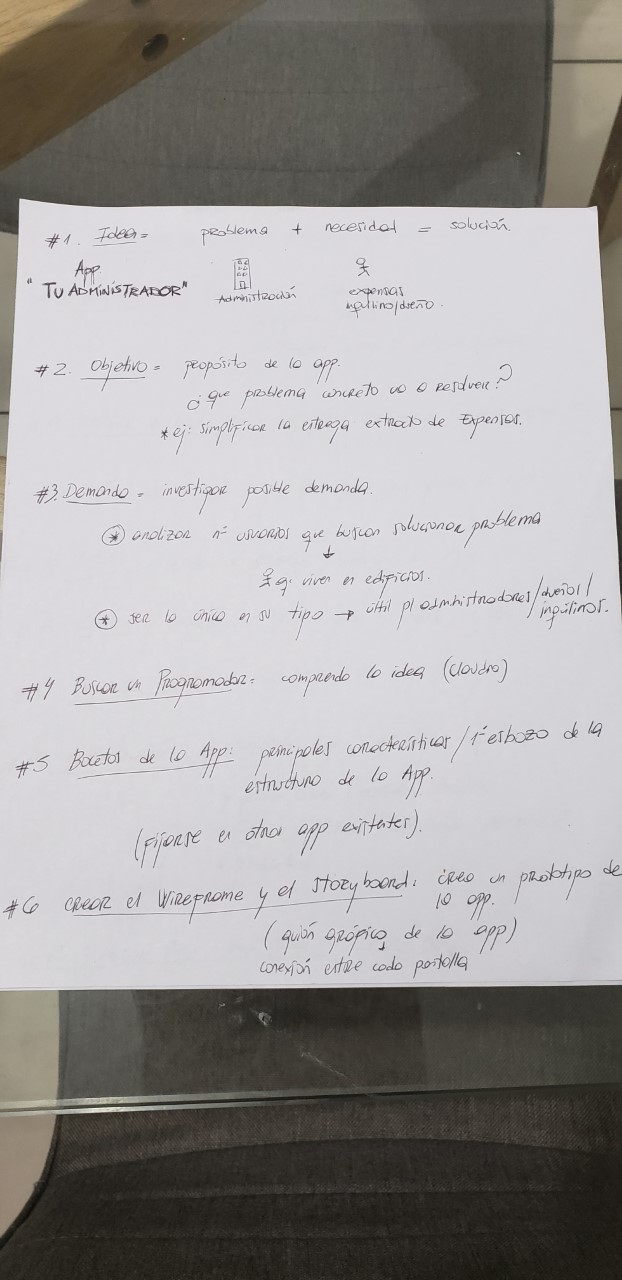 #1. Idea = problema + necesidad = solución.
App
"TU ADMINISTRADOR"
Administración
expensas
inquilino/dueño.
#2. Objetivo = propósito de la app.
¿que problema concreto va a resolver?
* ej: simplificar la entrega extracto de Expensas.
#3. Demanda = investigar posible demanda.
* analizar nº usuarios que buscan solucionar problema
q. viven en edificios.
* ser la única en su tipo → útil p/ administradores/dueños/
inquilinos.
#4 Buscar un Programador: comprenda la idea (Claudio)
#5 Bocetos de la App: principales características / 1er esbozo de la
estructura de la App.
(fijarse en otras app existentes).
#6 CREAR el Wireframe y el Storyboard: creo un prototipo de
la app.
(guión gráfico de la app)
conexión entre cada pantalla